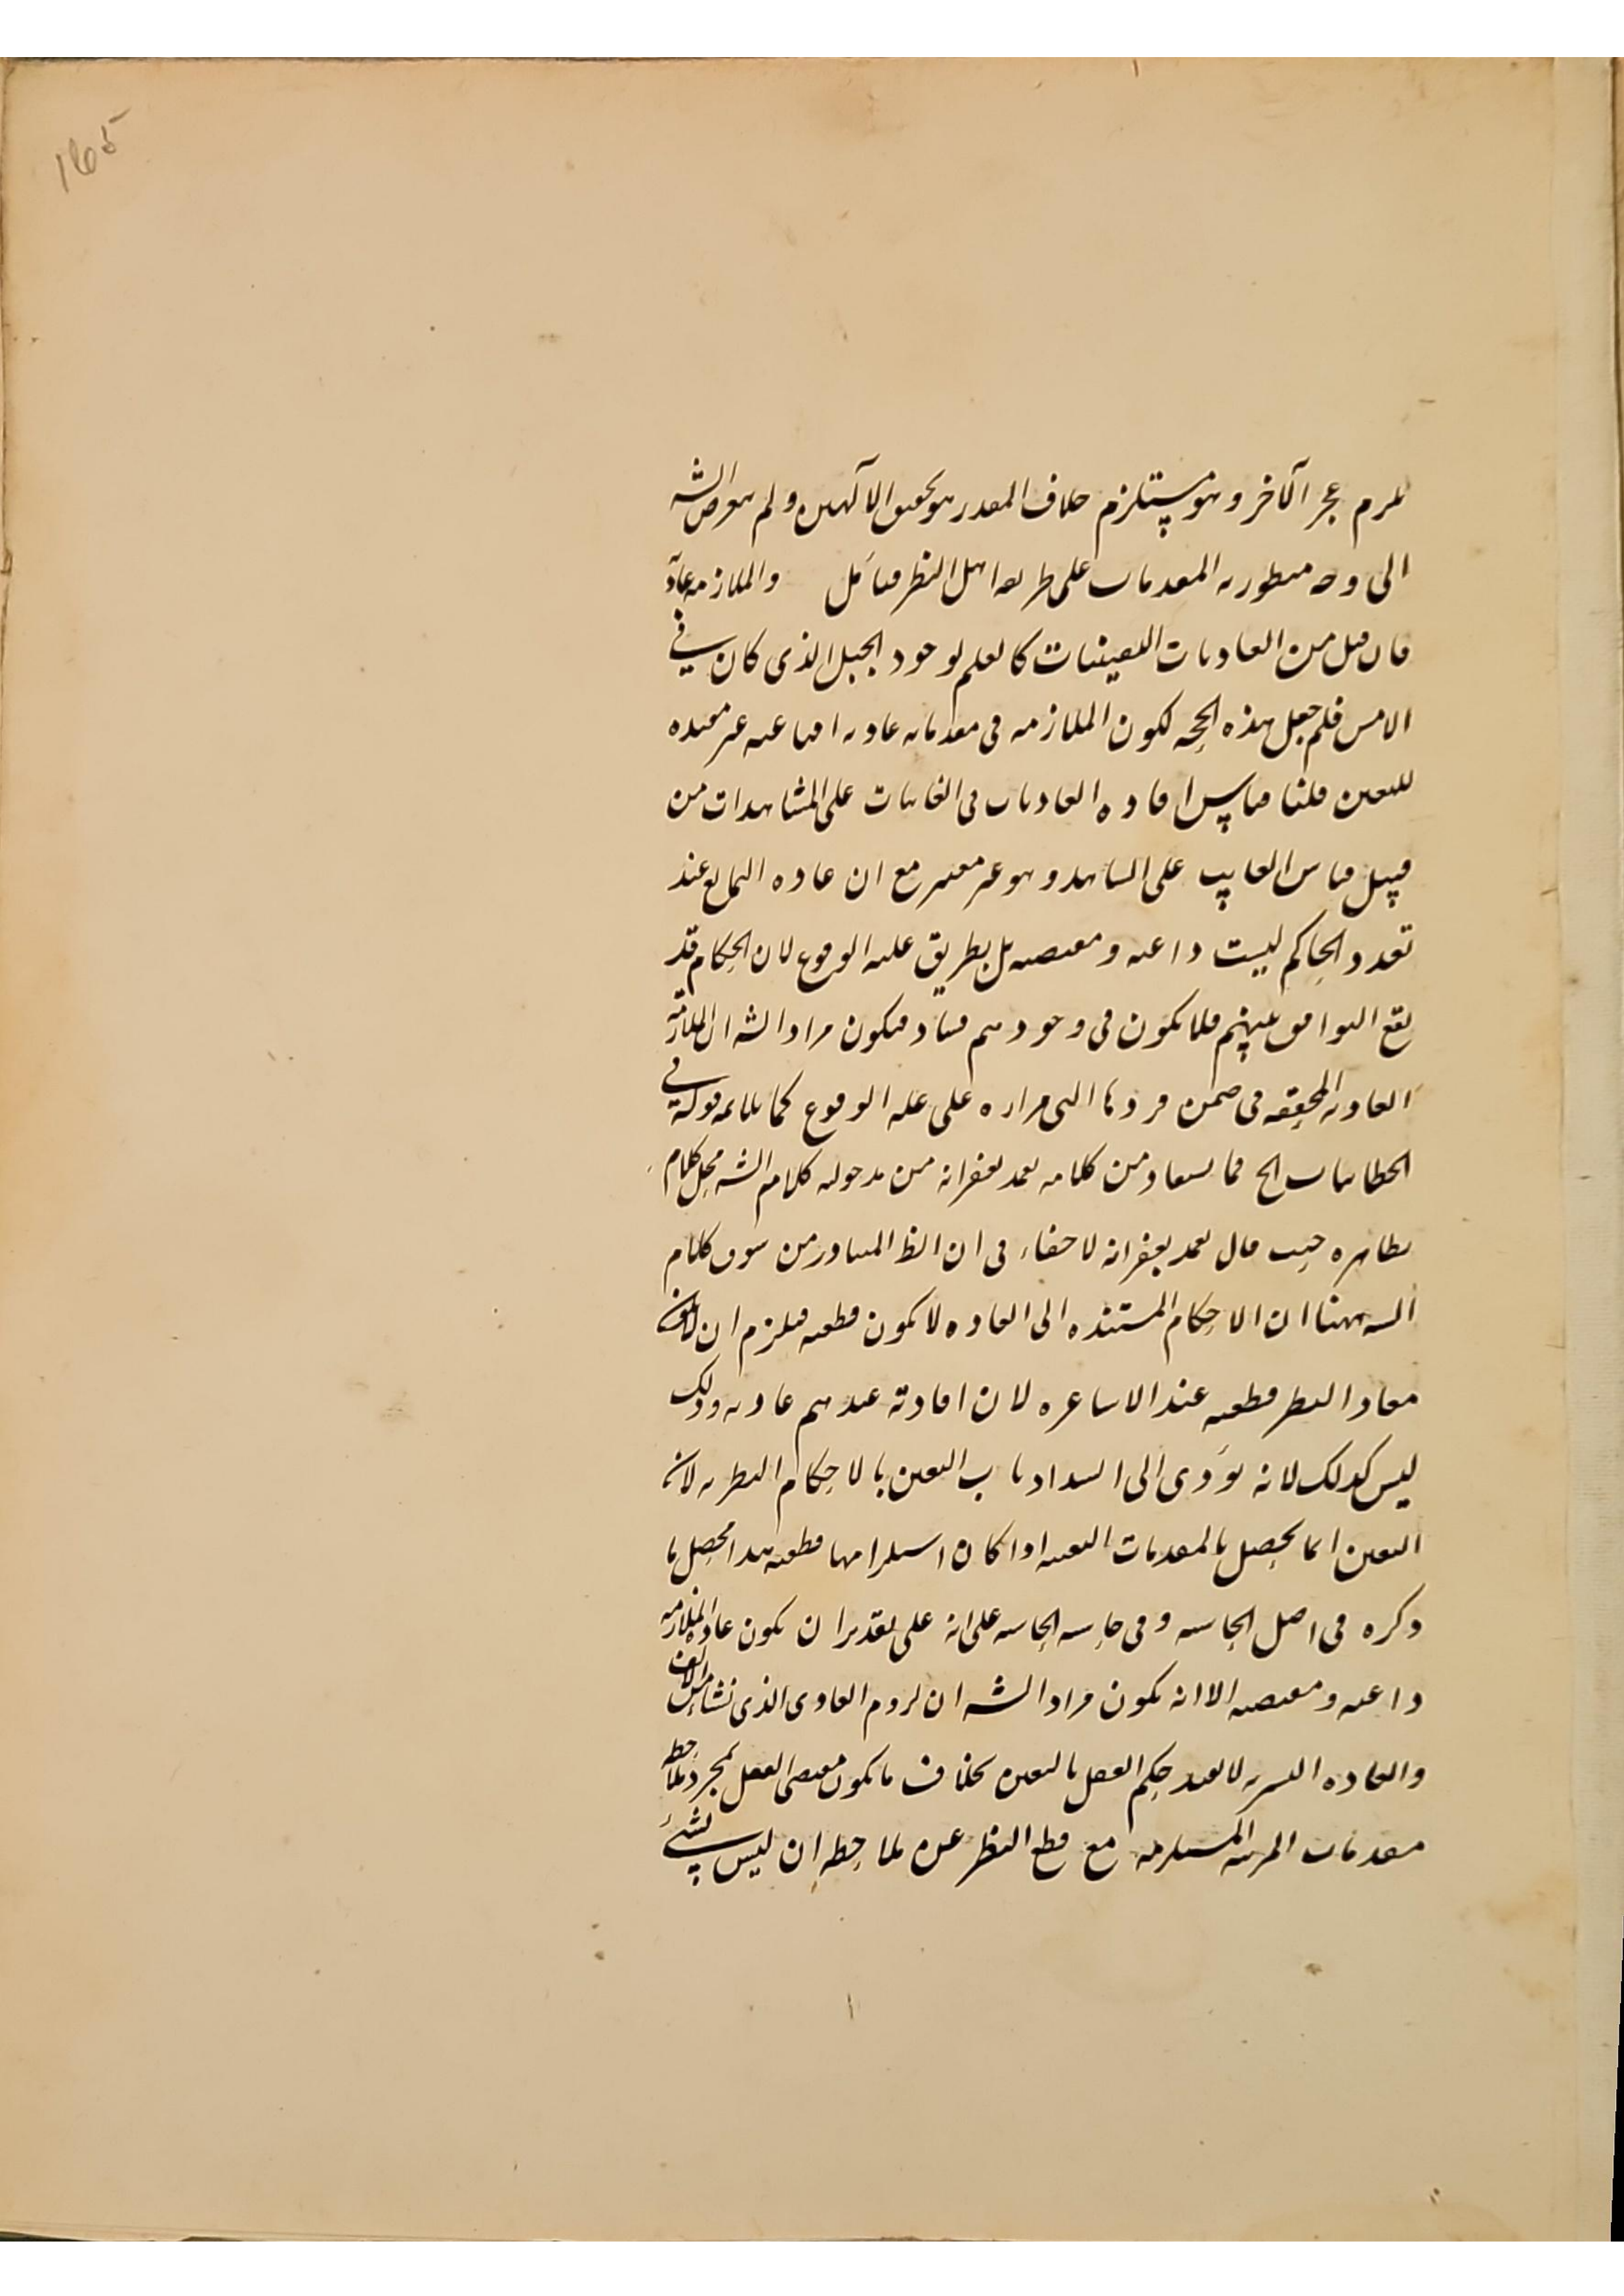 165
يلزم عجز الآخر وهو مستلزم خلاف المقدر هو تحقق الآلهين ولم يتعرض الشه
الى وجه منظوريه المقدمات على طريقه اهل النظر فتأمل والملازمه عاديه
فان قيل من العاديات اليقينيات كالعلم بوجود الجبل الذى كان فى
الامس فلم جعل هذه الحجه لكون الملازمه فى مقدماته عاديه اقناعيه غير مفيده
لليقين قلنا قياس افاده العاديات فى الغائبات على المشاهدات من
قبيل قياس الغايب على الشاهد وهو غير معتبر مع ان عاده التمانع عند
تعدد الحاكم ليست داعيه ومقتضيه بل بطريق غلبه الوقوع لان الحكام قد
يقع التوافق بينهم فلا يكون فى وجودهم فساد فيكون مراد الشه ان الملازمه
العاديه المحققه فى ضمن فردها التى مداره على غلبه الوقوع كما يلائمه قوله فى
الخطابيات الخ فما يستفاد من كلامه تغمد بغفرانه من مدخوليه كلام الشه محل كلام
بظاهره حيث قال تغمد بغفرانه لا خفاء فى ان الظ المتبادر من سوق كلام
الشه ههنا ان الاحكام المستنده الى العاده لا يكون قطعيه فيلزم ان لا يكون
مفاد النظر قطعيه عند الاشاعره لان افادته عندهم عاديه وذلك
ليس كذلك لانه يؤدى الى انسداد باب اليقين بالاحكام النظريه لان
اليقين انما يحصل بالمقدمات اليقينيه اذا كان استلزامها قطعيه هذا محصل ما
ذكره فى اصل الحاشيه وفى حاشيه الحاشيه على انه على تقدير ان يكون عاده الملازمه
داعيه ومقتضيه الا انه يكون مراد الشه ان لزوم العادى الذى نشا من الالف
والعاده البشريه لا يفيد حكم العقل باليقين بخلاف ما يكون مقتضى العقل بمجرد ملاحظه
مقدمات المرتبه المستلزمه مع قطع النظر عن ملاحظه ان ليس بشئ